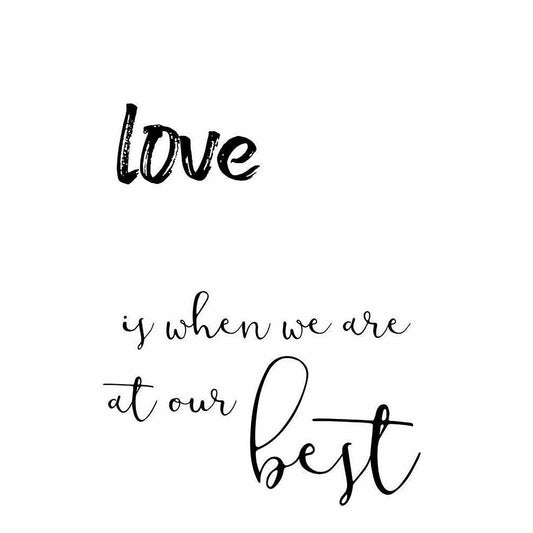 love
is when we are
at our best